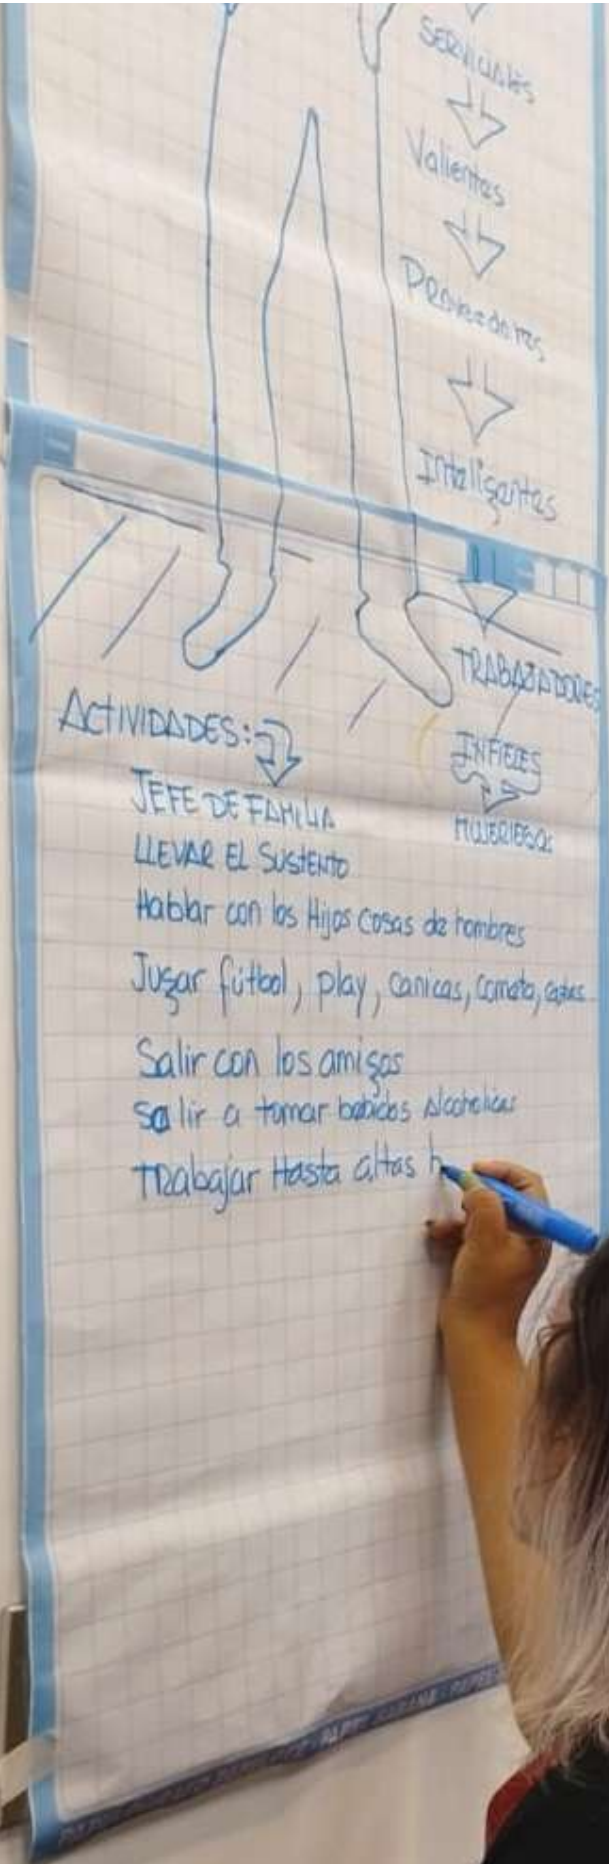 SERVICIALES
Valientes
PROVEEDORES
Inteligentes
TRABAJADORES
INFIELES
MUJERIEGOS
ACTIVIDADES:
JEFE DE FAMILIA
LLEVAR EL SUSTENTO
Hablar con los Hijos cosas de hombres
Jugar fútbol, play, canicas, cometa,
Salir con los amigos
Salir a tomar bebidas Alcoholicas
TRabajar Hasta altas h